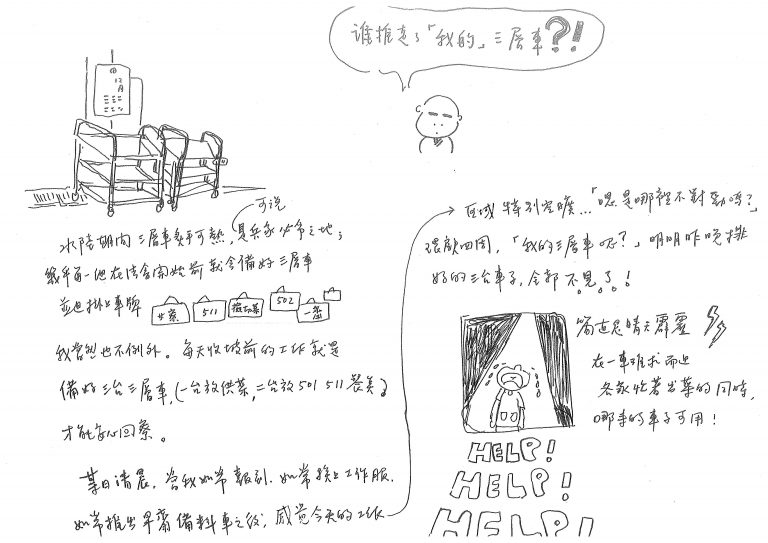 誰推走了「我的」三層車?!
12月
水陸期間三層車炙手可熱,可说是兵家必爭之地;
幾乎每一個在法會開始前就会備好三層車
並且掛上車牌
511
502
我當然也不例外。每天收坡前的工作就是
備好三台三層車,(一台放供菜,二台放501 511餐美)
才能安心回寮。
某日清晨,當我如常報到.如常換上工作服.
如常推出早齋備料車之後,感覺今天的工作
区域特別空曠...「嗯是哪裡不對勁嗎?」
環顧四周,「我的三層車呢?」明明昨晚排
好的三台車子,全部不見了!
簡直是晴天霹靂
在一車難求而且
各寮忙著出菜的同時,
哪來的車子可用!
HELP!
HELP!
HELP!